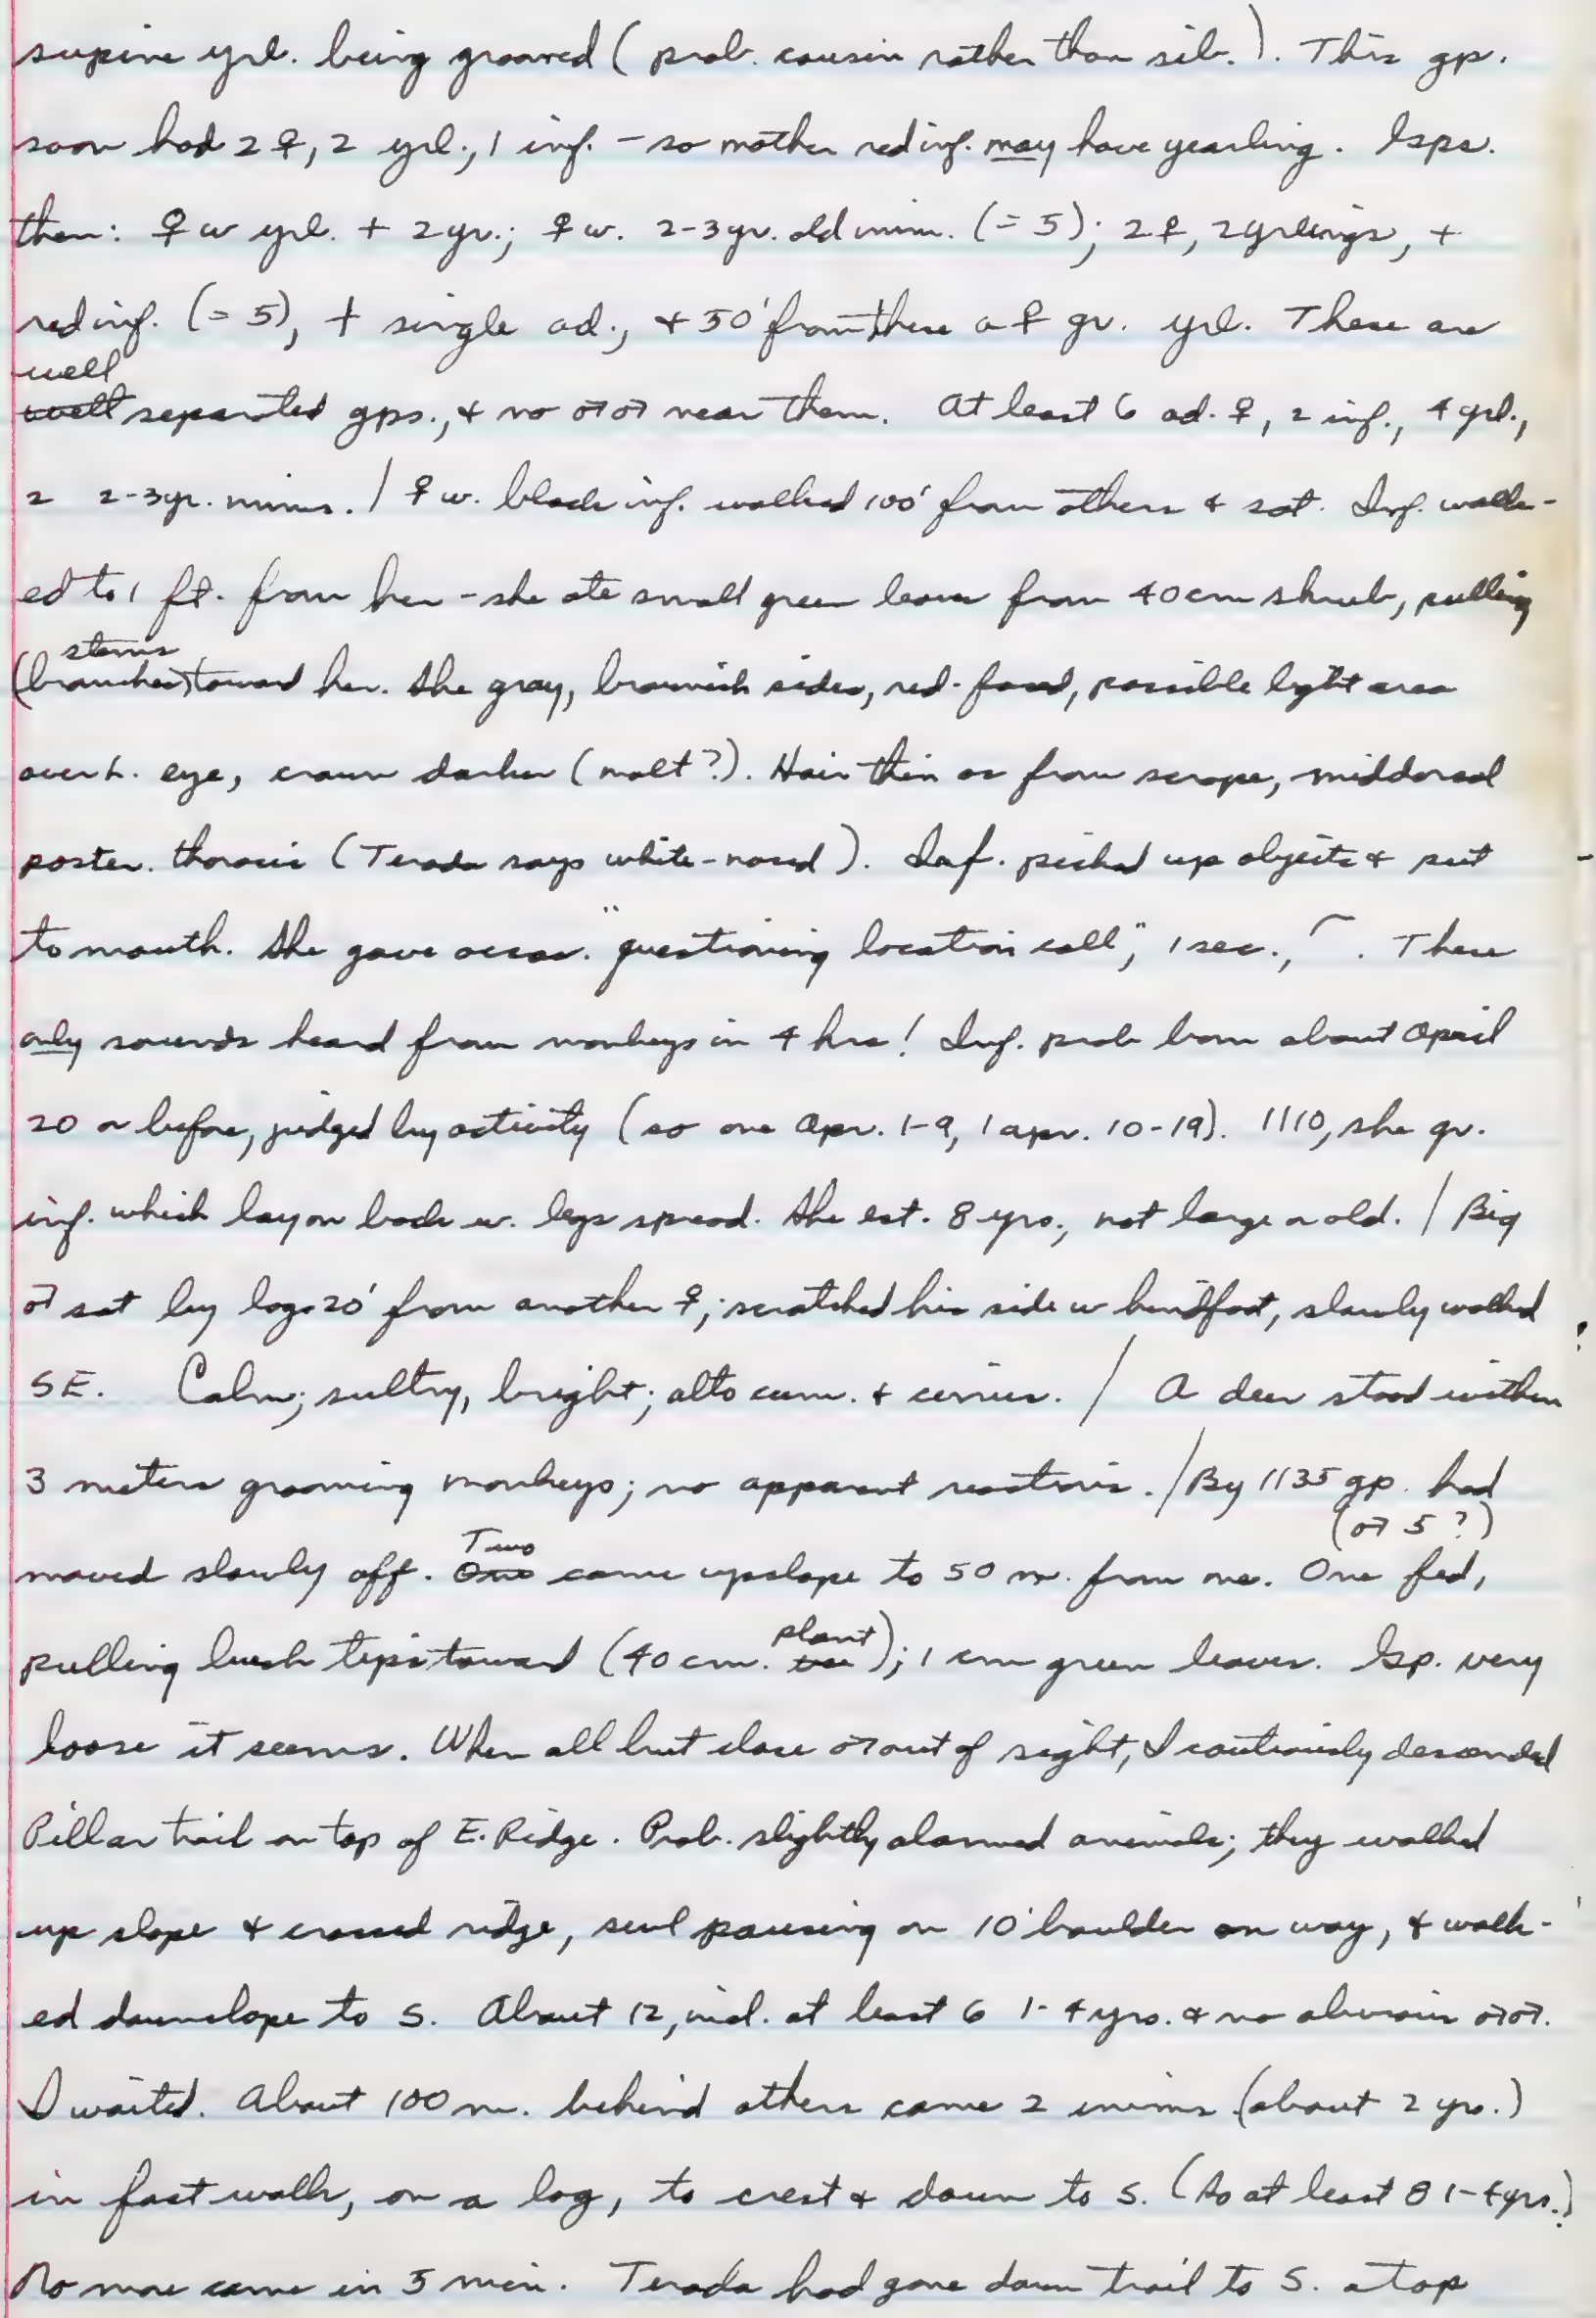 supine yrl. being groomed (prob. cousin rather than sib.). This gp.
soon had 2 ♀, 2 yrl., 1 inf. – so mother red inf. may have yearling. Gps.
then: ♀ w yrl. + 2 yr.; ♀ w. 2-3 yr. old imm. (= 5); 2 ♀, 2 yrlings, +
red inf. (= 5), + single ad., + 50' from these a ♀ gr. yrl. These are
well
well separated gps., & no ♂♂ near them. At least 6 ad. ♀, 2 inf., 4 yrl.,
2 2-3 yr. imms. / ♀ w. black inf. walked 100' from others & sat. Inf. walk-
ed to 1 ft. from her – she ate small green leaves from 40 cm shrub, pulling
stems
(branches) toward her. She gray, brownish sides, red-faced, possible light area
over L. eye, crown darker (molt?). Hair thin as from scrape, middorsal
poster. thoracic (Terada says white-nosed). Inf. picked up objects & put
to mouth. She gave occas. "questioning location call", 1 sec., ⌒. These
only sounds heard from monkeys in 4 hrs! Inf. prob born about April
20 or before, judged by activity (so one Apr. 1-9, 1 Apr. 10-19). 1110, she gr.
inf. which lay on back w. legs spread. She est. 8 yrs., not large or old. / Big
♂ sat by logs 20' from another ♀; scratched his side w hindfoot, slowly walked
SE. Calm; sultry, bright; alto cum. & cirrus. / A deer stood within
3 meters grooming monkeys; no apparent reactions. / By 1135 gp. had
(♂ 5?)
Two
moved slowly off. One came upslope to 50 m. from me. One fed,
plant
pulling bush tips toward (40 cm. tree); 1 cm green leaves. Gp. very
loose it seems. When all but close ♂ out of sight, I cautiously descended
Pillar trail on top of E. Ridge. Prob. slightly alarmed animals; they walked
up slope & crossed ridge, sevl pausing on 10' boulder on way, & walk-
ed downslope to S. About 12, incl. at least 6 1-4 yrs. & no obvious ♂♂.
I waited. About 100 m. behind others came 2 imms (about 2 yrs.)
in fast walk, on a log, to crest & down to S. (So at least 8 1-4 yrs.)
No more came in 5 min. Terada had gone down trail to S. atop